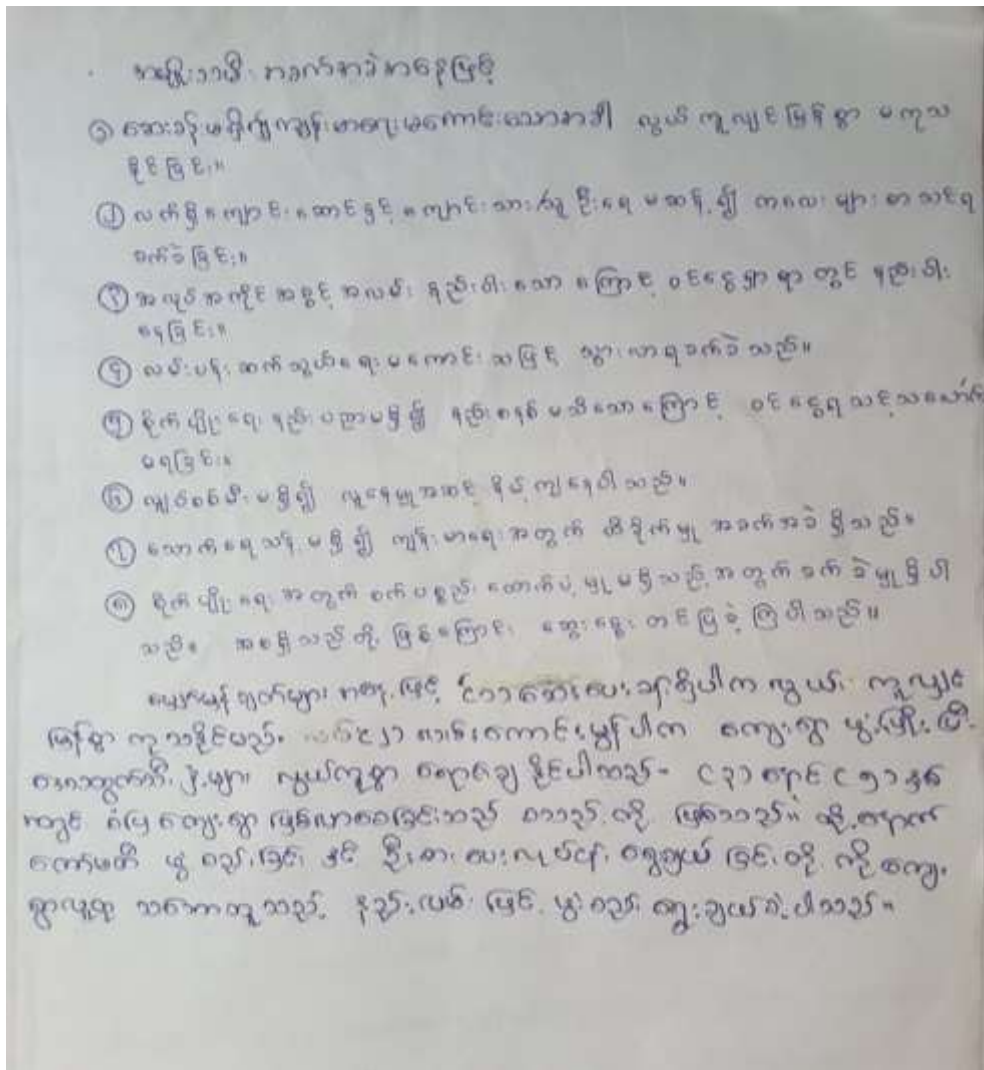 အမျိုးသမီး အခက်အခဲအနေဖြင့်
၁ ဆေးခန်းမရှိ၍ ကျန်းမာရေးမကောင်းသောအခါ လွယ်ကူလျင်မြန်စွာ မကုသ
နိုင်ခြင်း။
၂ လက်ရှိကျောင်းဆောင်နှင့် ကျောင်းသား/သူ ဦးရေ မဆန့်၍ ကလေးများ စာသင်ရ
ခက်ခဲခြင်း။
၃ အလုပ်အကိုင် အခွင့်အလမ်း ရှည်းပါးသောကြောင့် ဝင်ငွေရှာရာတွင် နည်းပါး
နေခြင်း။
၄ လမ်းပန်းဆက်သွယ်ရေး မကောင်းသဖြင့် သွားလာရခက်ခဲသည်။
၅ စိုက်ပျိုးရေး နည်းပညာမရှိ၍ နည်းစနစ်မသိသောကြောင့် ဝင်ငွေရသင့်သလောက်
မရခြင်း။
၆ လျှပ်စစ်မီးမရှိ၍ လူနေမှုအဆင့် နိမ့်ကျနေပါသည်။
၇ သောက်ရေသန့်မရှိ၍ ကျန်းမာရေးအတွက် ထိခိုက်မှု အခက်အခဲ ရှိသည်။
၈ စိုက်ပျိုးရေးအတွက် စက်ပစ္စည်း ထောက်ပံ့မှုမရှိသည့်အတွက် ခက်ခဲမှုရှိပါ
သည်။ အစရှိသည်တို့ ဖြစ်ကြောင်း ဆွေးနွေးတင်ပြခဲ့ကြပါသည်။
မျှော်မှန်းချက်များအနေဖြင့် ဆေးပေးခန်းရှိပါက လွယ်ကူလျင်
မြန်စွာ ကုသနိုင်မည်။ လမ်းကောင်းမွန်ပါက ကျေးရွာ ဖွံ့ဖြိုးပြီး
ဒေသထွက်သီးနှံများ လွယ်ကူစွာ ရောင်းချနိုင်ပါသည်။
တွင် စံပြကျေးရွာ ဖြစ်လာစေခြင်းသည် စသည်တို့ ဖြစ်သည်။ ထို့နောက်
ကော်မတီ ဖွဲ့စည်းခြင်း နှင့် ဦးစားပေးလုပ်ငန်း ရွေးချယ်ခြင်းတို့ကို ကျေး
ရွာလူထု သဘောတူသည့် နည်းလမ်းဖြင့် ဖွဲ့စည်းရွေးချယ်ခဲ့ပါသည်။